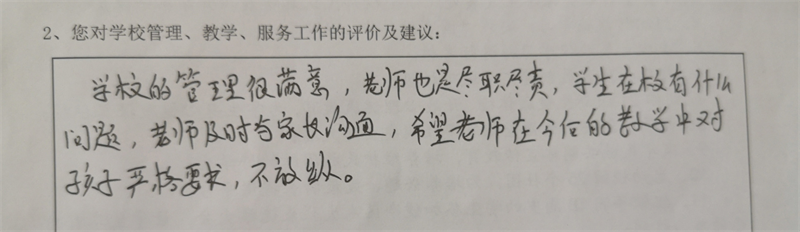 2、您对学校管理、教学、服务工作的评价及建议：
学校的管理很满意，老师也是尽职尽责，学生在校有什么
问题，老师及时与家长沟通，希望老师在今后的教学中对
孩子严格要求，不放纵。